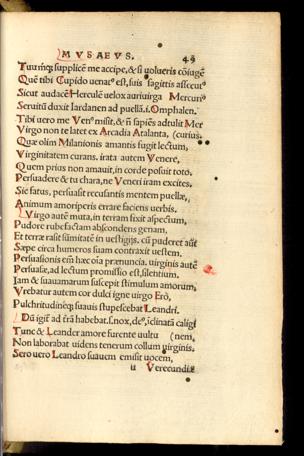 MVSAEVS. 49
Tuumq; supplicē me accipe, & si volueris cōiugē
Quē tibi Cupido uenat' est, suis sagittis assecut'
Sicut audacē Herculē uelox auriuirga Mercuri'
Seruitū duxit Iardanen ad puellā. i. Omphalen.
Tibi uero me Ven' misit, & ñ sapiēs adtulit Mer
Virgo non te latet ex Arcadia Atalanta, (curius.
Quæ olim Milanionis amantis fugit lectum,
Virginitatem curans. irata autem Venere,
Quem prius non amauit, in corde posuit toto.
Persuadere & tu chara, ne Veneri iram excites.
Sic fatus, persuasit recusantis mentem puellæ,
Animum amoriperis errare faciens uerbis.
Virgo autē muta, in terram fixit aspectum,
Pudore rubefactam abscondens genam.
Et terræ rasit sūmitatē in uestigijs. cū puderet aūt
Sæpe circa humeros suam contraxit uestem.
Persuasionis em̄ hæc oīa prænuncia. uirginis autē
Persuasæ, ad lectum promissio est, silentium.
Iam & suauamarum suscepit stimulum amorum,
Vrebatur autem cor dulci igne uirgo Erō,
Pulchritudineq; suauis stupescebat Leandri.
Dū igit' ad terā habebat. s. nox, de', iclinatā caligi
Tunc & Leander amore furente uultu (nem,
Non laborabat uidens tenerum collum uirginis.
Sero uero Leandro suauem emisit uocem,
ii Verecundiæ